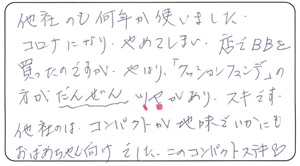 他社のも何年か使いました.
コロナになり、やめてしまい、店でBBを
買ったのですが、やはり、「クッションファンデ」の
方がだんぜん ツヤがあり、スキです.
他社のは、コンパクトが地味でいかにも
おばあちゃん向けでした。このコンパクトステキ